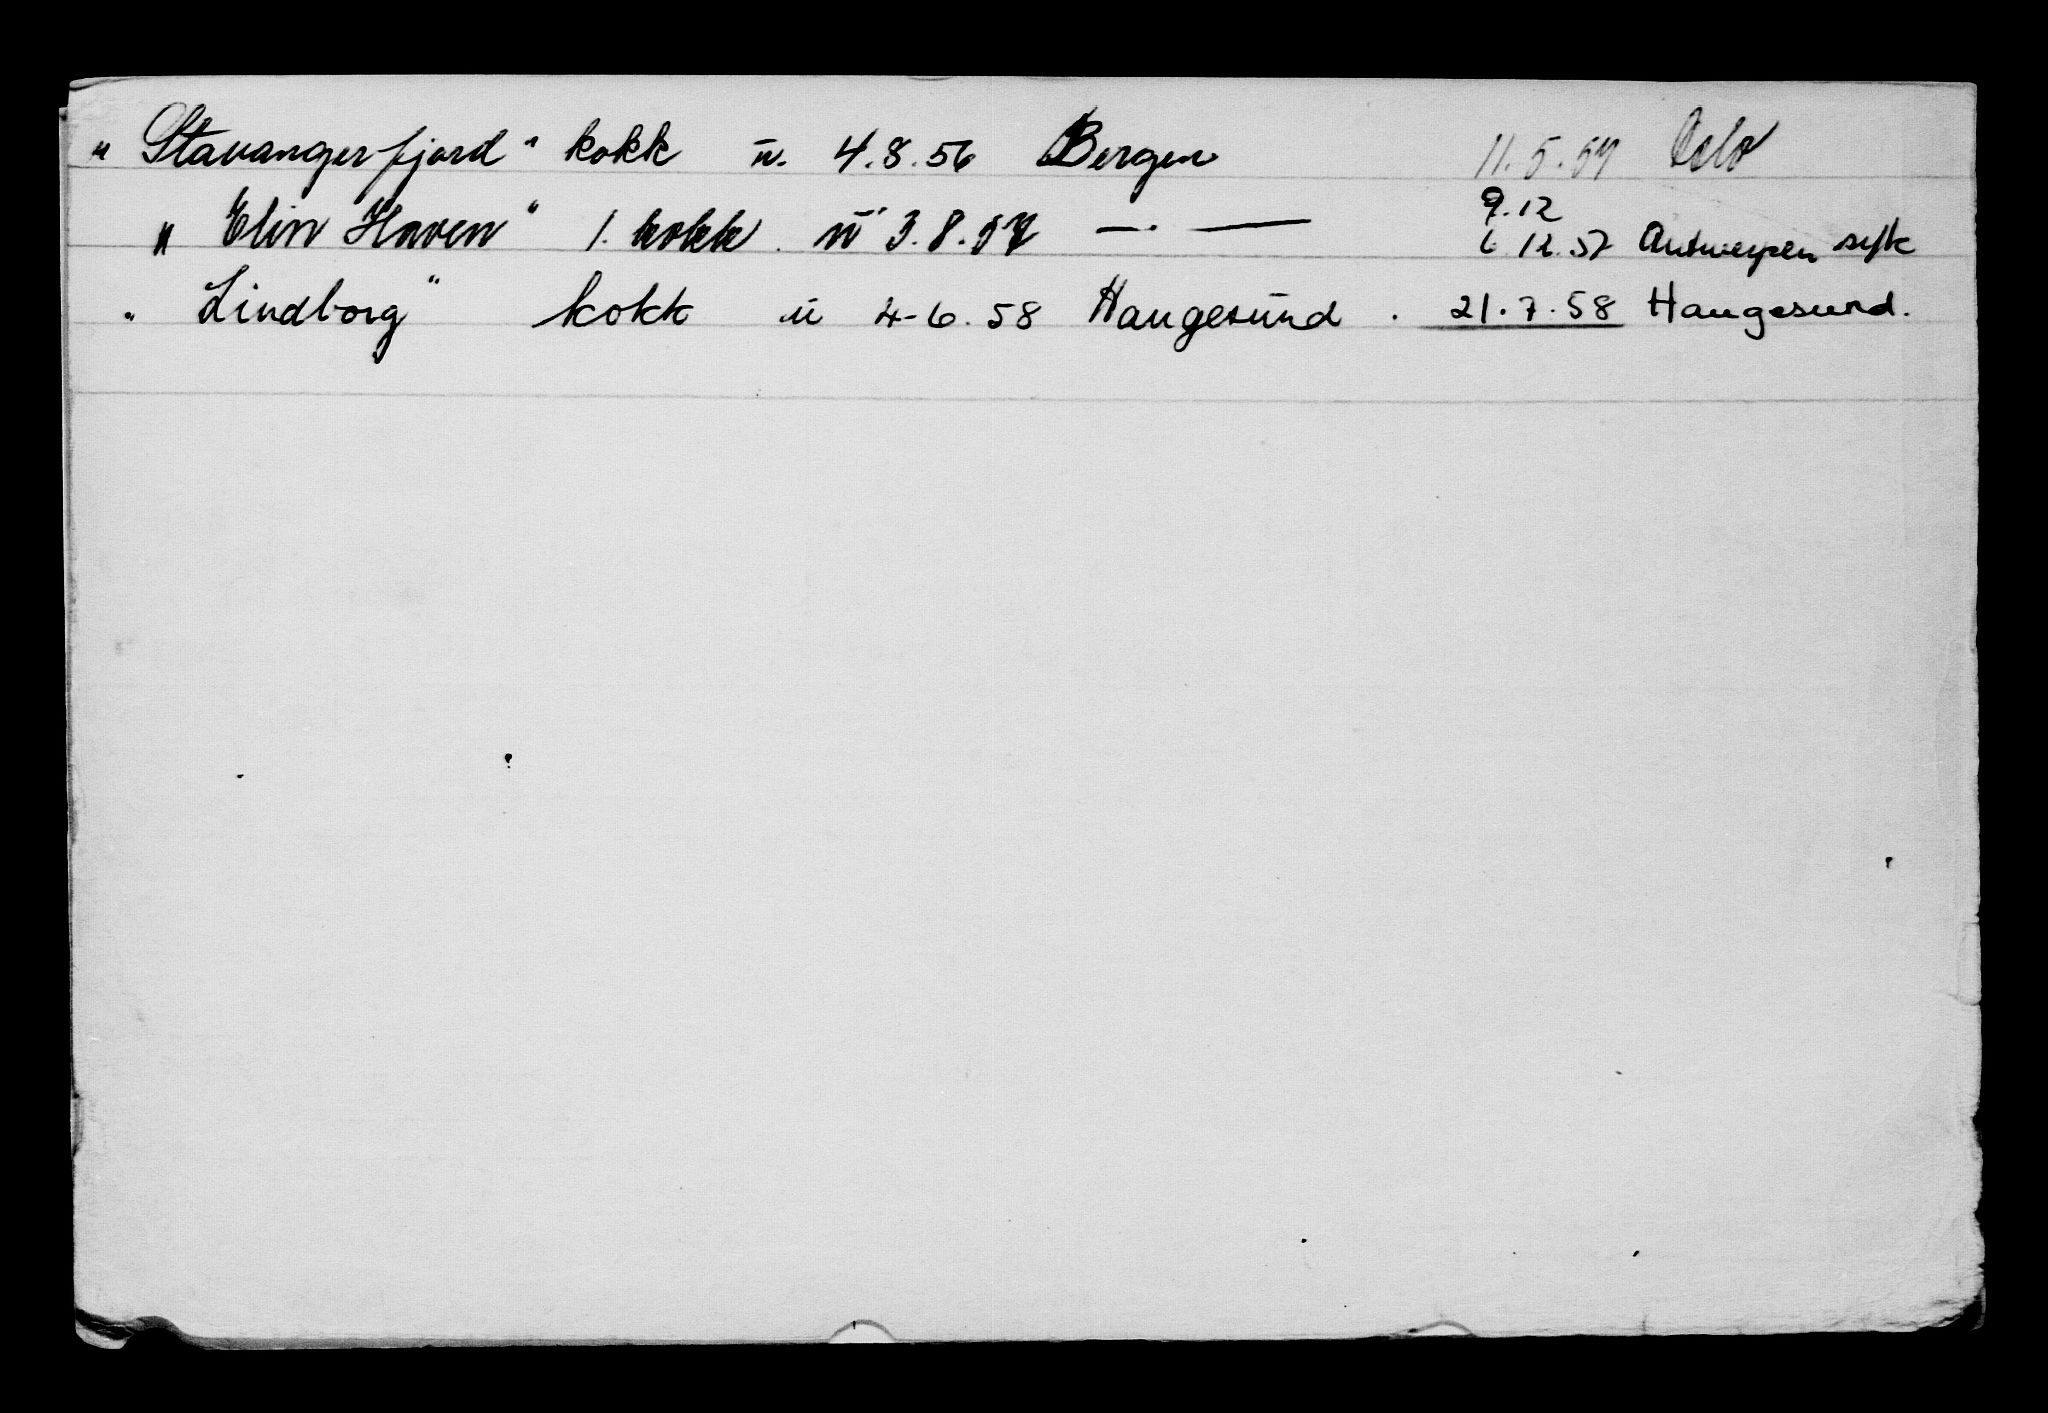 " Stavangerfjord " kokk u. 4.8.56 Bergen 11.5.57 Oslo
9.12
" Elin Haven " 1. kokk. u 3.8.57 — . — 6.12.57 Antwerpen syk
" Lindborg " kokk u 4-6.58 Haugesund . 21.7.58 Haugesund.